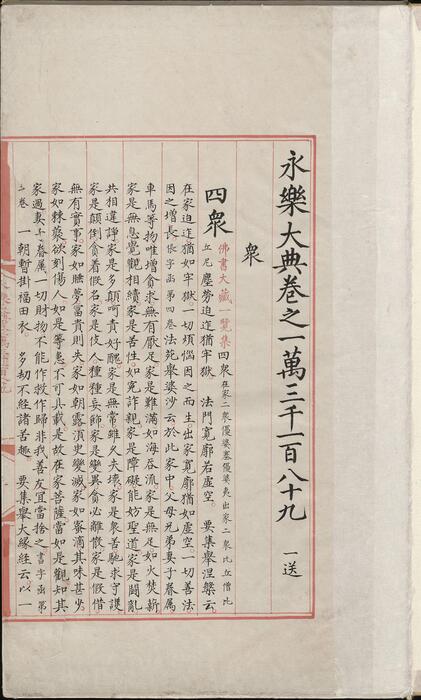 永樂大典卷之一萬三千一百八十九 一送
眾
四眾 佛書大藏一覽集四眾在家二眾優婆塞優婆夷出家二眾比丘僧比
丘尼 塵勞迫迮猶牢獄。 法門寬廓若虛空。 要集舉涅槃云。
在家迫迮猶如牢獄。一切煩惱因之而生出家寬廓猶如虛空。一切善法
因之增長張字函第四卷法苑舉婆沙云於此家中。父母兄弟妻子眷屬
車馬等物唯增貪求無有厭足家是難滿如海吞流家是無足如火焚薪
家是無息覺觀相續家是苦性如寃詐親家是障礙能妨聖道家是鬪亂
共相違諍家是多顛呵責好醜家是無常雖久失壞家是衆苦馳求守護
家是顛倒貪着假名家是伎人種種妄飾家是變異貪必離散家是假借
無有實事。家如睡夢富貴則失家如朝露須臾變滅家如蜜滴其味甚少。
家如棘叢欲刺傷人。如是等患不可具載是故在家菩薩當如是觀知其
家過妻子眷屬。一切財物不能作救作歸非我善友宜當捨之書字函第
二卷 一朝暫掛福田衣。 多劫不經諸苦趣。 要集舉大緣經云。以一